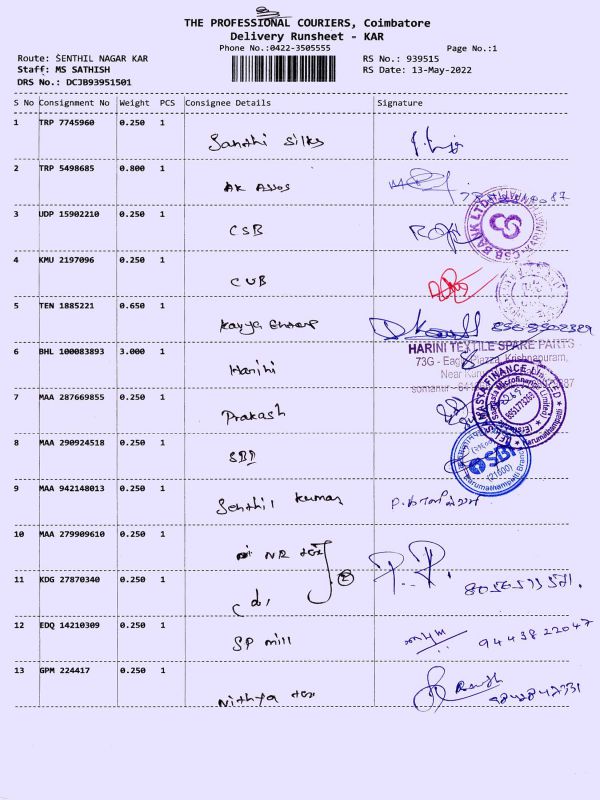 THE PROFESSIONAL COURIERS, Coimbatore
Delivery Runsheet - KAR
Phone No.:0422-3505555
Page No.:1
Route: SENTHIL NAGAR KAR
RS No.: 939515
Staff: MS SATHISH
RS Date: 13-May-2022
DRS No.: DCJB93951501
S No Consignment No Weight PCS Consignee Details Signature
1 TRP 7745960 0.250 1
Santhi Silks
2 TRP 5498685 0.800 1
AK Assos
3 UDP 15902210 0.250 1
CSB
CSB BANK LTD
4 KMU 2197096 0.250 1
CUB
5 TEN 1885221 0.650 1
Kavya
6 BHL 100083893 3.000 1
Harini
HARINI TEXTILE SPARE PARTS
73G - Eagle Plazza, Krishnapuram,
Near
somanur - 641
7 MAA 287669855 0.250 1
Prakash
SAMASTA FINANCE LIMITED
Karumathampatti
8 MAA 290924518 0.250 1
SBI
SBI
(21600)
Karumathampatti Branch
9 MAA 942148013 0.250 1
Senthil Kumar
10 MAA 279909610 0.250 1
NR tex
2
11 KDG 27870340 0.250 1
P. P.
12 EDQ 14210309 0.250 1
SP mill
9443822047
13 GPM 224417 0.250 1
Nithya tex